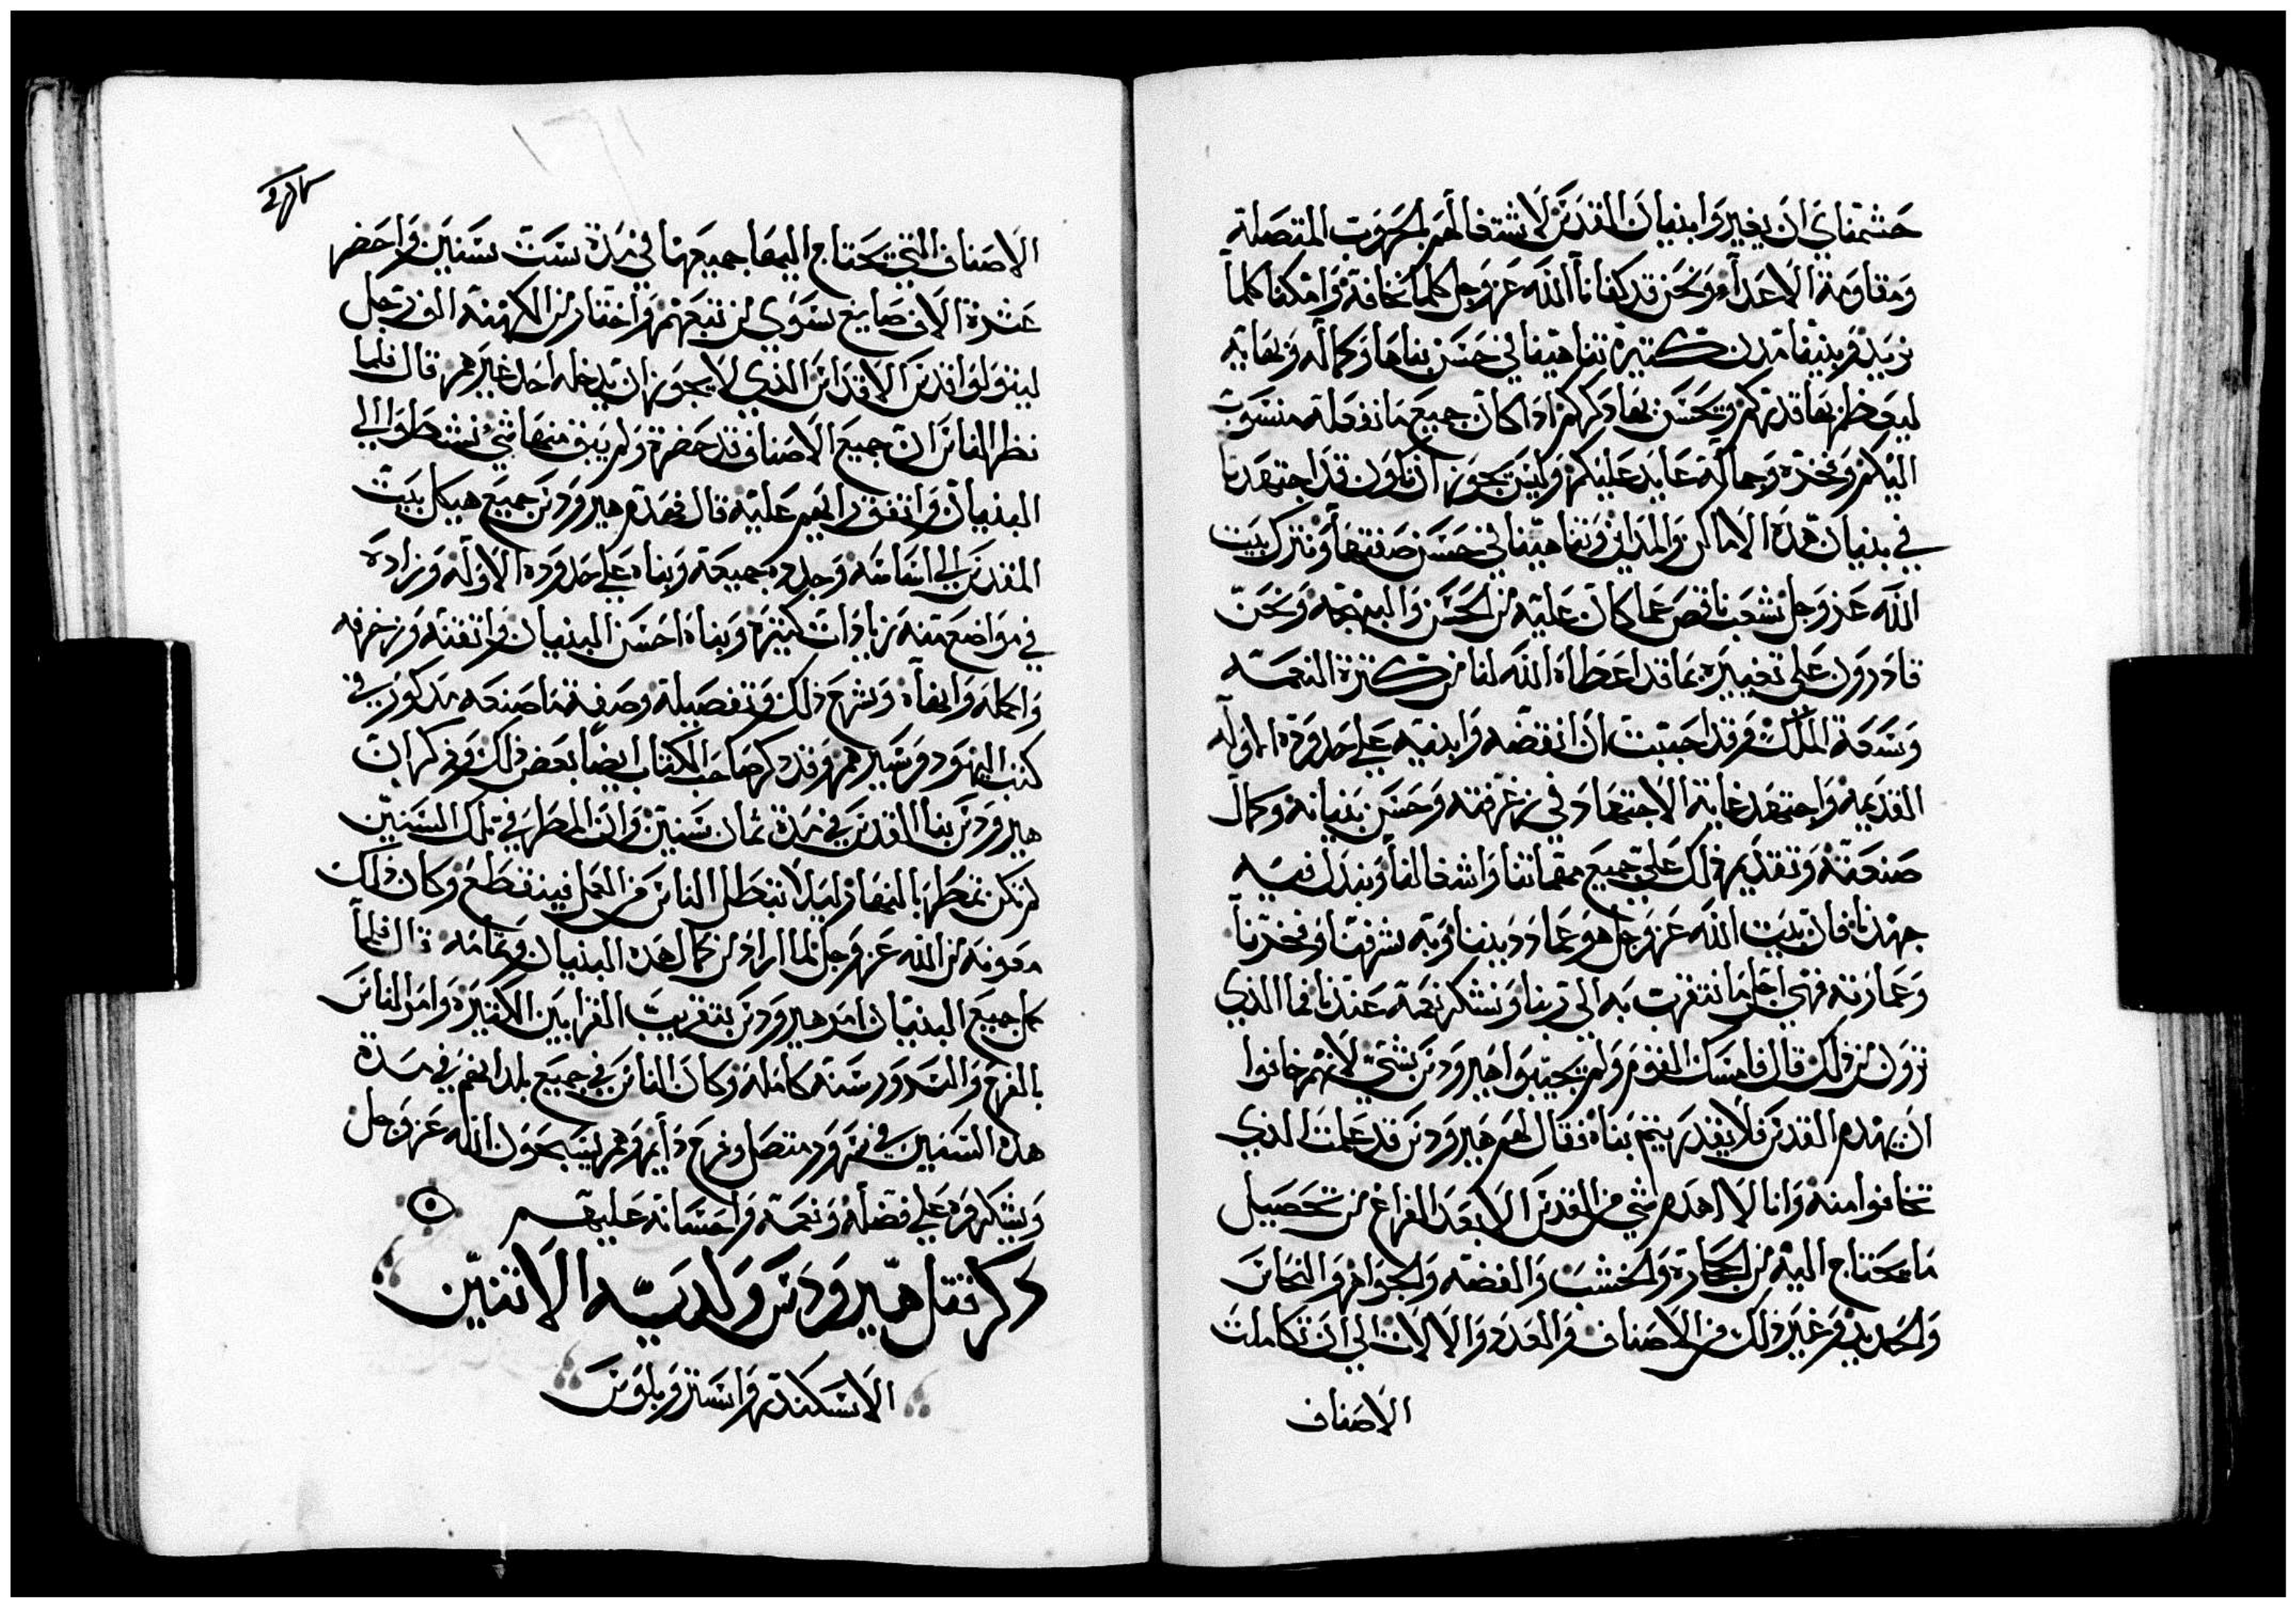 حشمناي ان يغيروا بنيان القدس لاشتغالهم بالحروب المتصلة
ومقاومة الاعداء ونحن قد كفانا الله عز وجل كلما نخافه وامكنا كلما
نريد وبنينا مدن كثيرة تناهينا في حسن بناها وكماله وبهايه
ليعظم بها قدركم ويحسن بها ذكركم اذا كان جميع ما نفعله منسوب
اليكم وفخره وجماله عايد عليكم وليس يجوز ان نكون قد اجتهدنا
في بنيان هذه الاماكن والمداين وتناهينا في حسن صنعتها ونترك بيت
الله عز وجل شعب ناقص عما كان عليه من الحسن والبهجه ونحن
قادرون على تغييره بما قد اعطاه الله لنا من كثرة النعمه
وسعة الملك وقد احببت ان انقضه وابنيه على حدوده الاوله
القديمه واجتهد غاية الاجتهاد في زخرفته وحسن بنيانه وكمال
صنعته وتقديم ذلك على جميع مهماتنا واشغالنا ونبدل فيه
جهدنا فان بيت الله عز وجل هو عماد ديننا وبه شرفنا وفخرنا
وعمارته فهي اجل ما نتقرب به الى ربنا ونشكر نعمه عندنا فما الذي
ترون من ذلك قال فامسك القوم ولم يجيبوا هيرودس بشي لانهم خافوا
ان يهدم القدس فلا يقدر يتم بناه فقال لهم هيرودس قد علمت الذي
تخافوا منه وانا لا اهدم شي من القدس الا بعد الفراغ من تحصيل
ما يحتاج اليه من الحجارة والخشب والفضه والجواهر والنحاس
والحديد وغير ذلك من الاصناف والعدد والالات الى ان تكاملت
الاصناف
الاصناف التي يحتاج اليها جميعها في مدة ست سنين واحضر
عشرة الاف صايغ سوى من تبعهم واختار من الكهنه الف رجل
ليتولوا قدس الاقداس الذي لا يجوز ان يدخله احد غيرهم قال فلما
نظر الناس ان جميع الاصناف قد حضرة ولم يبق منها شي نشطوا الى
البنيان واتفق رايهم عليه قال فهدم هيرودس جميع هيكل بيت
المقدس الى اساسه وجدده جميعه وبناه على حدوده الاوله وزاده
في مواضع منه زيادات كثيره وبناه احسن البنيان واتقنه وزخرفه
واكمله وابهاه وشرح ذلك وتفصيله وصفة ما صنعه مذكور في
كتب اليهود وسيرهم وقد ذكر صاحب الكتاب ايضا بعض ذلك وذكر ان
هيرودس بنا القدس في مدة ثمان سنين وان المطر في تلك السنين
لم تكن تمطر بالنهار ليلا تبطل الناس من العمل فينقطع وكان ذلك
معونه من الله عز وجل لما اراد من كمال هذه البنيان وتمامه قال فلما
كمل جميع البنيان امر هيرودس بتقريب القرابين الكثيره وامر الناس
بالفرح والسرور سنه كامله وكان الناس في جميع بلدانهم في مدة
هذه السنين في سرور متصل وفرح دايم وهم يسبحون الله عز وجل
ويشكروه على فضله ونعمه واحسانه عليهم
ذكر قتل هيرودس ولديه الاثنين
الاسكندر وارستروبلوس